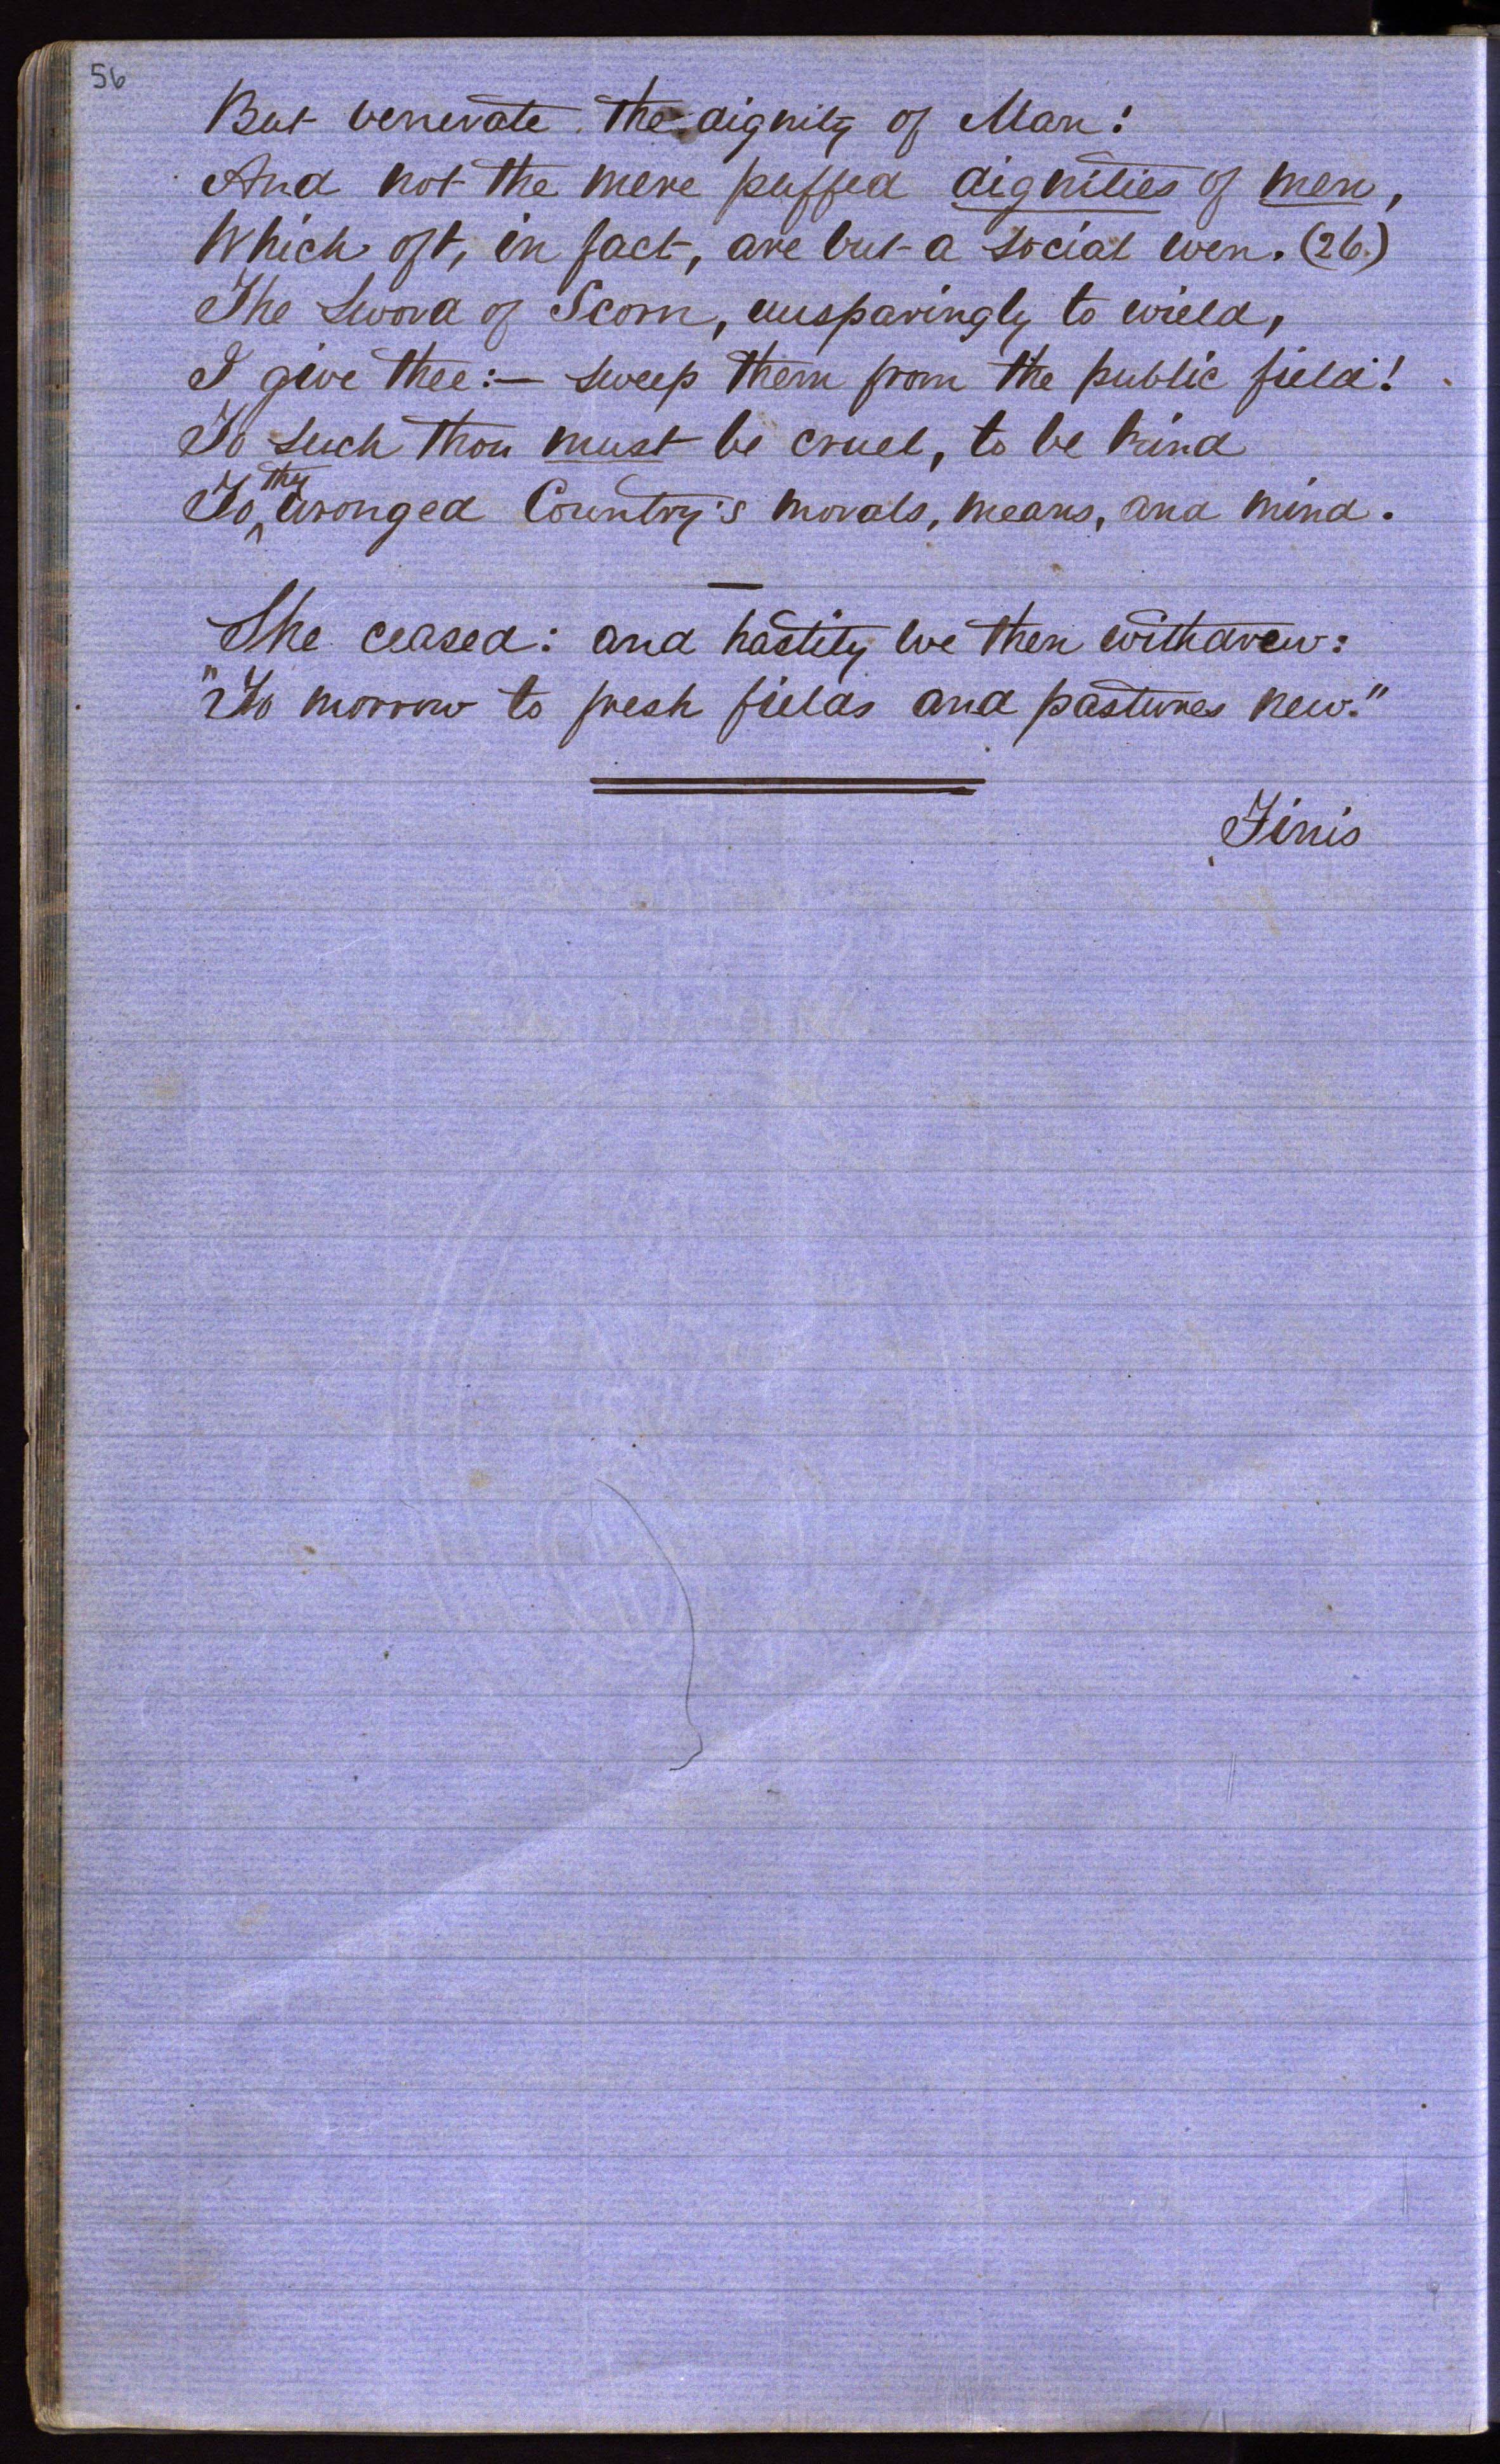 56
But venerate the dignity of Man!
And not the mere puffed dignities of men,
Which oft, in fact, are but a social wen. (26.)
The Sword of Scorn, unsparingly to wield,
I give thee:— sweep them from the public field!
To such thou must be cruel, to be kind
To thy wronged Country's morals, means, and mind.
She ceased: and hastily we then withdrew:
"To morrow to fresh fields and pastures new."
Finis